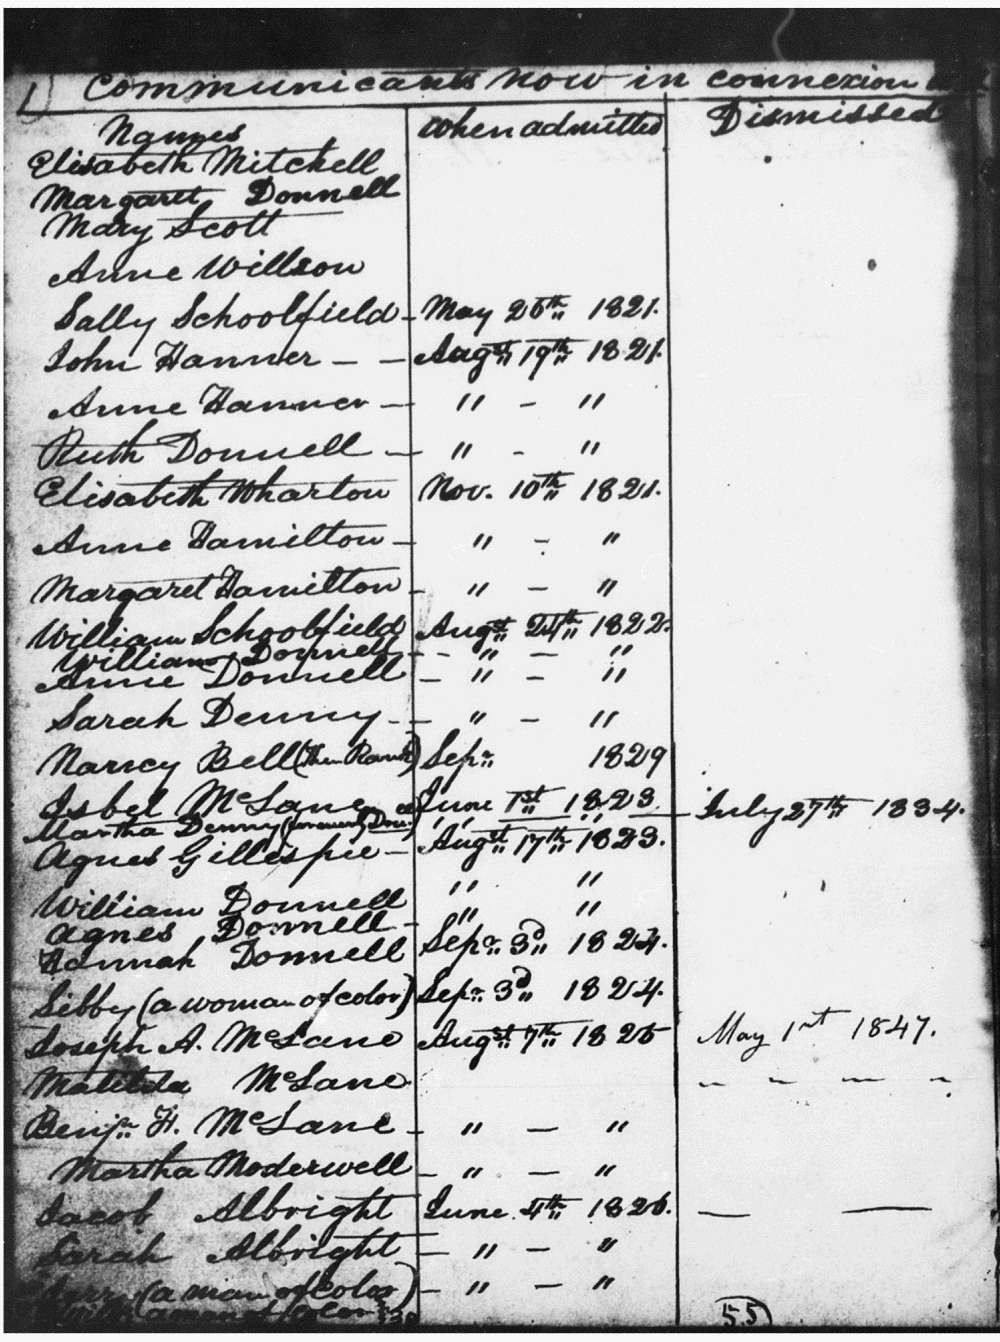 Communicants now in connexion
Names When admitted Dismissed
Elisabeth Mitchell
Margaret Donnell
Mary Scott
Anne Willson
Sally Schoolfield - May 26th 1821.
John Hanner - - Augst 19th 1821.
Anne Hanner - " - "
Ruth Donnell - " - "
Elisabeth Wharton Nov. 10th 1821.
Anne Hamilton - " - "
Margaret Hamilton - " - "
William Schoolfield Augst 24th 1822.
William Donnell - - " - "
Anne Donnell - " - "
Sarah Denny - - " - "
Nancy Bell (then Rank) Sepr 1829
Isbel McLane June 1st 1823. — July 27th 1834.
Martha Denny (formerly ) " "
Agnes Gillespie - Augst 17th 1823.
William Donnell " "
Agnes Donnell - " "
Hannah Donnell Sepr. 3d 1824.
Sibby (a woman of color) Sepr. 3d 1824.
Joseph A. McLane Augst 7th 1825 May 1st 1847.
Matilda McLane " " " "
Benjn H. McLane - " - "
Martha Moderwell - " - "
Jacob Albright June 4th 1826. — —
Sarah Albright - " - "
(a man of color) - " - "
a man of color
55